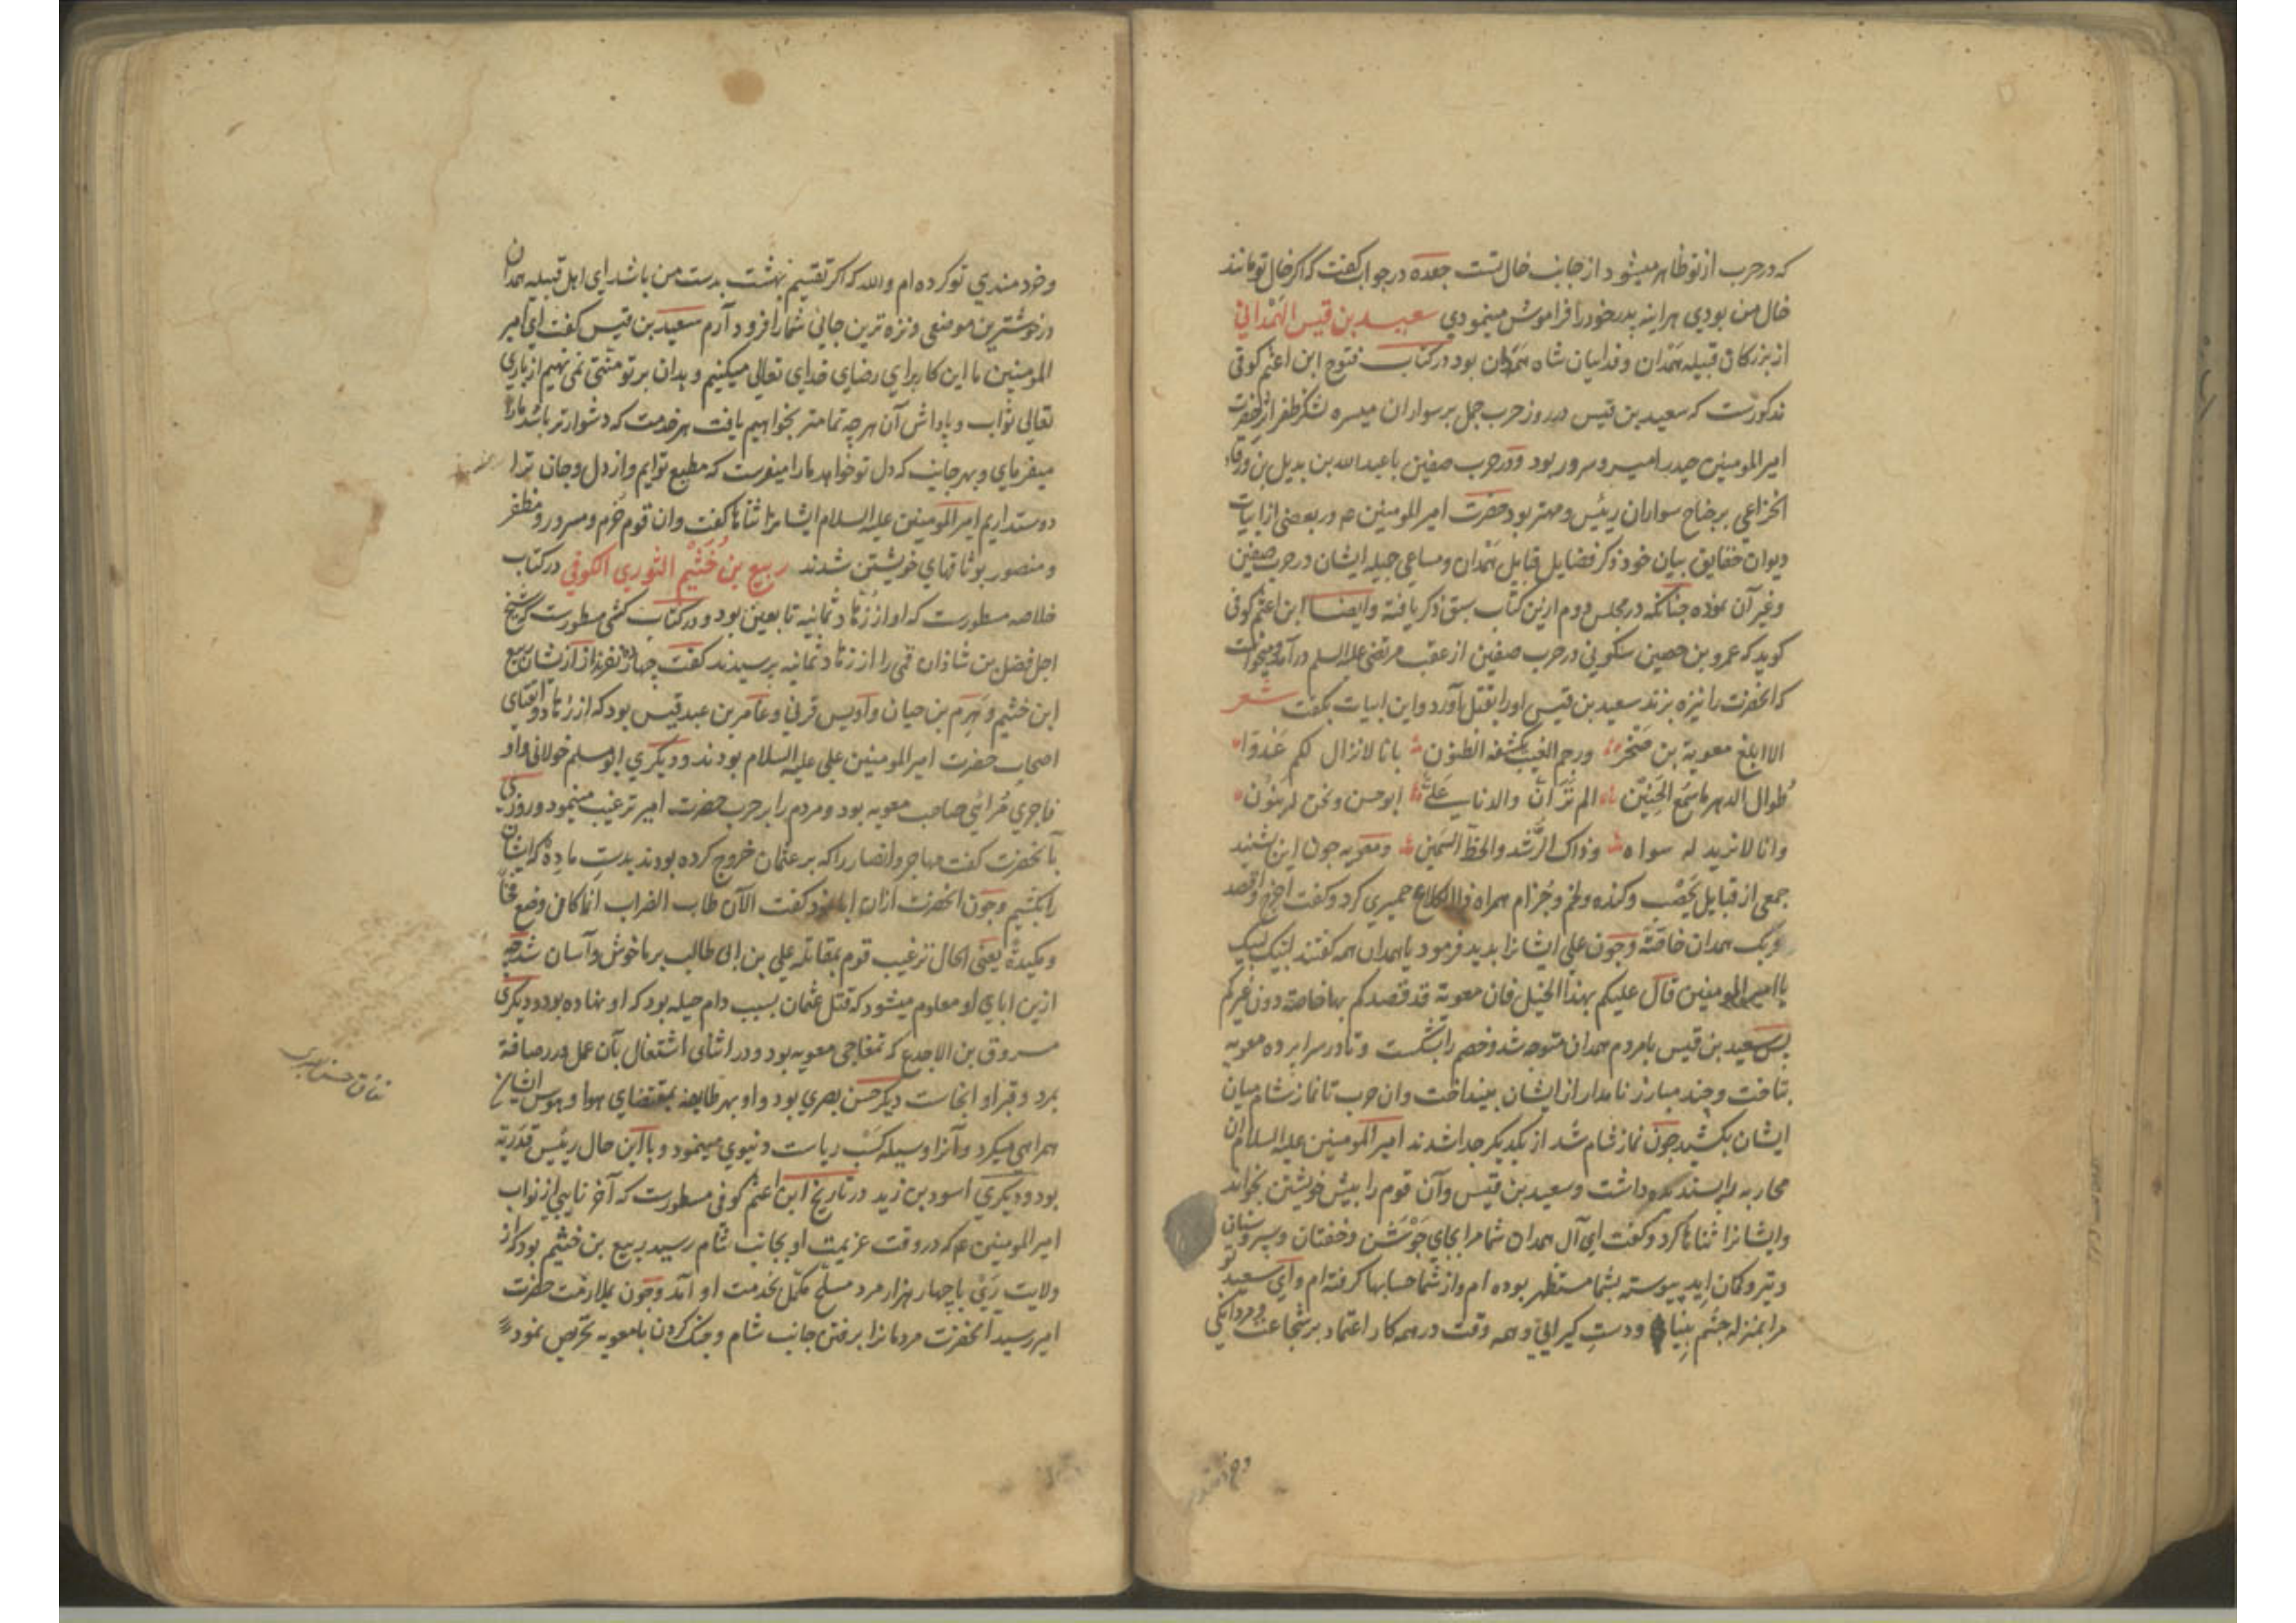 که در حرب از تو ظاهر میشود از جانب خال تست جعده در جواب گفت که اکر خال تو مانند
خال من بودی هراینه پدر خود را فراموش مینمودی سعید بن قیس الهَمْدانی
از بزرکان قبیله همدان و فدائیان شاه همدان بود در کتاب فتوح ابن اعثم کوفی
مذکورست که سعید بن قیس در روز حرب جمل بر سواران میسره لشکر ظفر اثر حضرت
امیر المومنین حیدر امیر و سرور بود و در حرب صفین با عبدالله بن بدیل بن ورقاء
الخزاعی بر جناح سواران رئیس و مهتر بود حضرت امیر المومنین ع در بعضی از ابیات
دیوان حقایق بیان خود ذکر فضایل قبایل همدان و مساعی جمیله ایشان در حرب صفین
و غیر آن نموده چنانکه در مجلس دوم ازین کتاب سبق ذکر یافته وایضا ابن اعثم کوفی
کوید که عمرو بن حصین سکونی در حرب صفین از عقب مرتضی علیه السلم درآمد و میخواست
که آنحضرت را نیزه بزند سعید بن قیس اورا بقتل آورد واین ابیات بگفت شعر
الا ابلغ معویة بن صَخْرٍ ورجم الغیب یکشفه الظنون بانا لا نزال لکم عَدُوّا
طوال الدهر ما سُمِعَ الحَنِین الم تر انّ والدنا عَلیٌ ابو حسن ونحن له بنون
وانا لا نرید له سواه وذاک الرُشد والحظ السَمین ومعویه چون این بشنید
جمعی از قبایل یَحْصُب و کنده و لخم و جُزام همراه ذوالکلاع حمیری کرد و کفت اخرج واقصد
وبک همدان خاصّةً و چون علی ایشانرا بدید فرمود یا همدان همه کفتند لبیک لبیک
یا امیر المومنین قال علیکم بهذا الخیل فان معویة قد قصدکم بها خاصة دون غیرکم
پس سعید بن قیس با مردم همدان متوجه شد و خصم را بشکست و تا در سراپرده معویه
بتاخت و چند مبارز نامدار از ایشان بینداخت وان حرب تا نماز شام میان
ایشان بکشید چون نماز شام شد از یکدیکر جدا شدند امیر المومنین علیه السلام ان
محاربه را پسندیده داشت و سعید بن قیس و آن قوم را بپیش خویشتن بخواند
وایشانرا ثناها کرد و کفت ای آل همدان شما مرا بجای جَوْشَن و خفتان و سپر و سنان
و تیر و کمان اید پیوسته بشما مستظهر بوده ام واز شما حسابها کرفته ام و ای سعید تو
مرا بمنزله چشم بینا و دستِ کیرایی و همه وقت در همه کار اعتماد بر شجاعت و مردانکی
و خردمندی تو کرده ام والله که اکر تقسیم بهشت بدست من باشد ای اهل قبیله همدان
در خوشترین موضعی و نزه ترین جائی شمارا فرود آرم سعید بن قیس کفت ای امیر
المومنین ما این کار برای رضای خدای تعالی میکنیم و بدان بر تو منتی نمی نهیم از باری
تعالی ثواب و پاداش آن هر چه تمامتر بخواهیم یافت هر خدمت که دشوارتر باشد مارا
میفرمای و بهر جانب که دل تو خواهد مارا میفرست که مطیع توایم واز دل و جان ترا
دوستداریم امیر المومنین علیه السلام ایشانرا ثناها کفت وان قوم خرّم و مسرور و مظفر
و منصور بوثاقهای خویشتن شدند ربیع بن خُثَیْم الثوری الکوفی در کتاب
خلاصه مسطورست که او از زهّاد ثمانیه تابعین بود و در کتاب کشی مسطورست که شیخ
اجل فضل بن شاذان قمی را از زهاد ثمانیه پرسیدند کفت چهار نفر از ایشان ربیع
ابن خثیم و هَرِم بن حیان و اویس قرنی و عامر بن عبد قیس بود که از زهاد و اتقیای
اصحاب حضرت امیر المومنین علی علیه السلام بودند و دیکری ابو مسلم خولانی و او
فاجری مُرائی صاحب معویه بود و مردم را بر حرب حضرت امیر ترغیب مینمود و روزی
بآنحضرت کفت مهاجر وانصار را که بر عثمان خروج کرده بودند بدستِ ما دِه که ایشان
را بکشیم و چون آنحضرت ازان ابا نمود کفت الآن طاب الضراب انما کان وضع فخاً
ومکیدةً یعنی الحال ترغیب قوم بمقاتله علی بن ابی طالب بر ما خوش و آسان شد چه
ازین ابای او معلوم میشود که قتل عثمان بسبب دام حیله بود که او نهاده بود و دیکری
مسروق بن الاجدع که تمغاچی معویه بود و در اثنای اشتغال بآن عمل در رصافة
بمرد و قبر او آنجاست دیکر حسن بصری بود و او بهر طایفه بمقتضای هوا و هوس ایشان
همراهی میکرد و آنرا وسیله کسب ریاست دنیوی مینمود و با این حال رئیس قَدَریّه
بود و دیکری اسود بن زید در تاریخ ابن اعثم کوفی مسطورست که آخر نایبی از نواب
امیر المومنین ع که در وقت عزیمت او بجانب شام رسید ربیع بن خثیم بود که از
ولایت رَیْ با چهار هزار مرد مسلّح مکمل بخدمت او آمد و چون بملازمت حضرت
امیر رسید آنحضرت مردمانرا برفتن جانب شام و جنک کردن با معویه تحریص نمود
نفاق حسن بصری